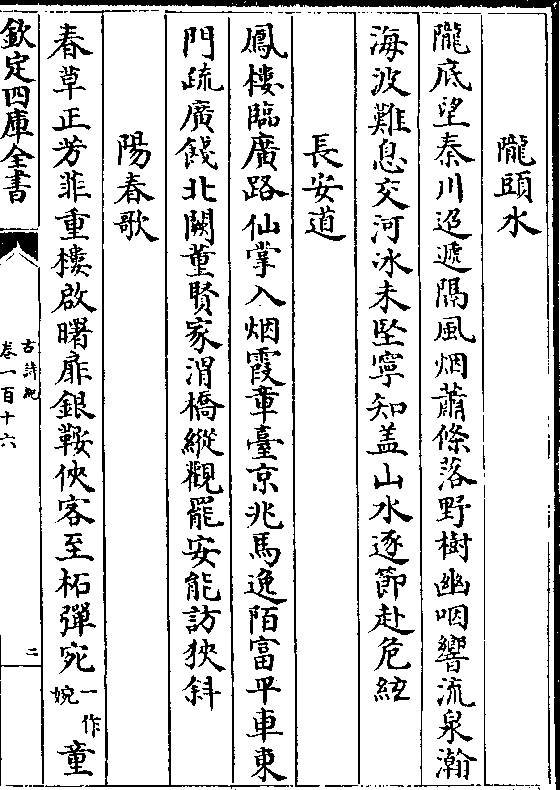 隴頭水
隴底望秦川迢遞隔風烟蕭條落野樹幽咽響流泉瀚
海波難息交河冰未堅寧知盖山水逐節赴危絃
長安道
鳳樓臨廣路仙掌入烟霞章臺京兆馬逸陌富平車東
門疏廣餞北闕董賢家渭橋縱觀罷安能訪狹斜
陽春歌
春草正芳菲重樓啟曙扉銀鞍俠客至柘彈宛一作婉童
欽定四庫全書
古詩紀
卷一百十六
二